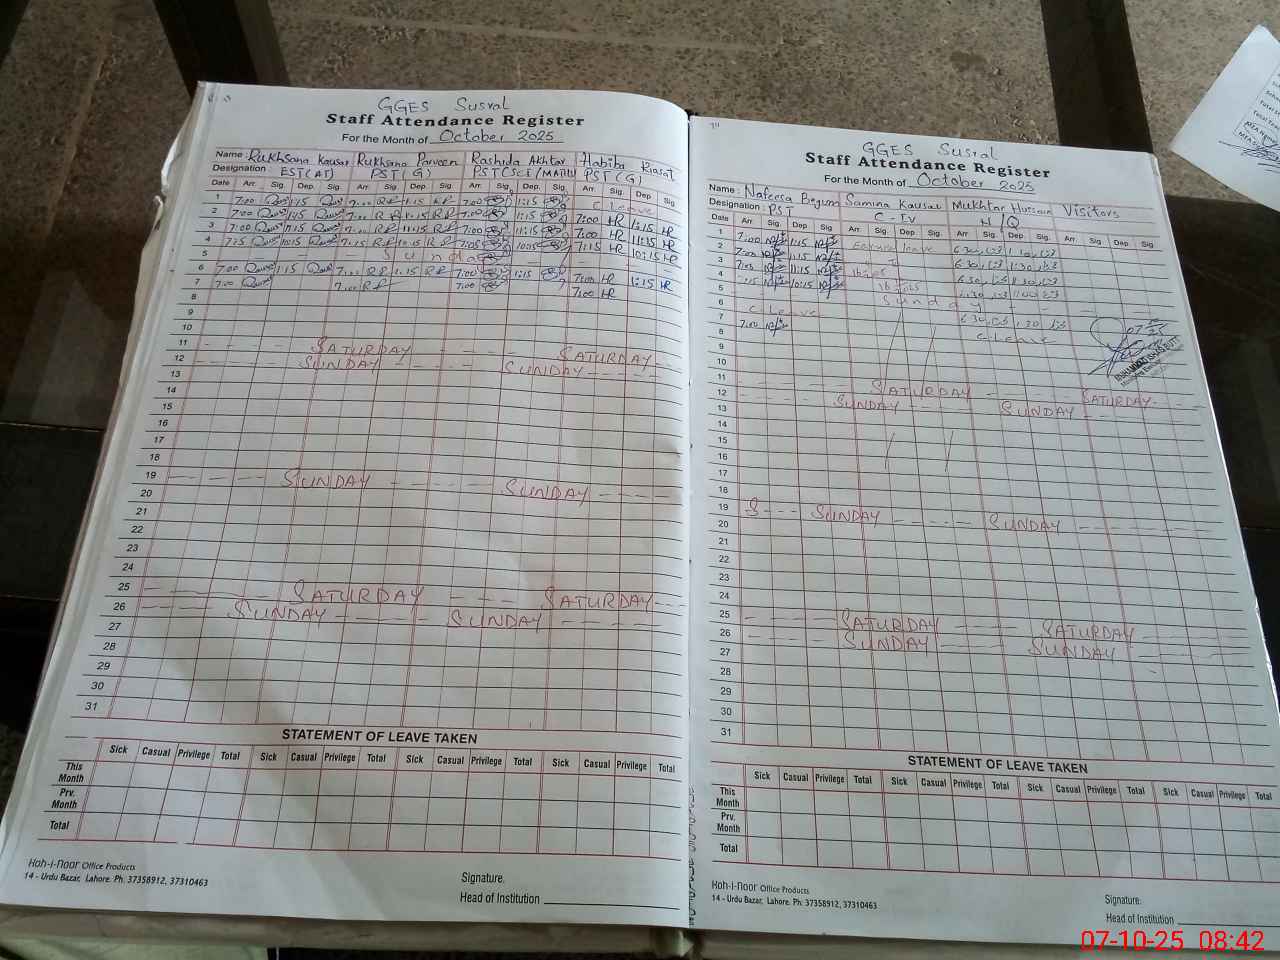 GGES Susral
Staff Attendance Register
For the Month of October 2025
Name: Rukhsana Kausar Rukhsana Parveen Rashida Akhtar Habiba Riasat
Designation: EST(AT) PST(G) PST(SCI/MATH) PST(G)
Date Arr. Sig. Dep. Sig. Arr. Sig. Dep. Sig. Arr. Sig. Dep. Sig. Arr. Sig. Dep Sig.
1 7:00 1:15 7:00 RP 1:15 RP 7:00 1:15 C Leave
2 7:00 1:15 7:00 RP 1:15 RP 7:00 1:15 7:00 HR 1:15 HR
3 7:00 1:15 7:00 RP 1:15 RP 7:00 1:15 7:00 HR 1:15 HR
4 7:15 10:15 7:15 RP 10:15 RP 10:15 7:15 HR 10:15 HR
5 Sunday
6 7:00 1:15 7:00 RP 1:15 RP 7:00 1:15 7:00 HR 1:15 HR
7 7:00 7:00 RP 7:00 7:00 HR
8
9
10
11 SATURDAY SATURDAY
12 SUNDAY SUNDAY
13
14
15
16
17
18
19 SUNDAY SUNDAY
20
21
22
23
24
25 SATURDAY SATURDAY
26 SUNDAY SUNDAY
27
28
29
30
31
STATEMENT OF LEAVE TAKEN
Sick Casual Privilege Total Sick Casual Privilege Total Sick Casual Privilege Total Sick Casual Privilege Total
This Month
Prv. Month
Total
Koh-i-noor Office Products
14 - Urdu Bazar, Lahore. Ph: 37358912, 37310463
Signature.
Head of Institution
GGES Susral
Staff Attendance Register
For the Month of October 2025
Name: Nafeesa Begum Samina Kausar Mukhtar Hussain Visitors
Designation: PST C-IV N/Q
Date Arr. Sig. Dep. Sig. Arr. Sig. Dep. Sig. Arr. Sig. Dep. Sig. Arr. Sig. Dep. Sig.
1 7:00 1:15 leave 6:30 1:30
2 7:00 1:15 6:30 1:30
3 7:00 1:15 6:30 1:30
4 10:15 6:30
5 Sunday
6 C Leave 6:30 1:30
7 7:00 C Leave
8
9
10
11 SATURDAY SATURDAY
12 SUNDAY SUNDAY
13
14
15
16
17
18
19 S SUNDAY SUNDAY
20
21
22
23
24
25 SATURDAY SATURDAY
26 SUNDAY SUNDAY
27
28
29
30
31
STATEMENT OF LEAVE TAKEN
Sick Casual Privilege Total Sick Casual Privilege Total Sick Casual Privilege Total Sick Casual Privilege Total
This Month
Prv. Month
Total
Koh-i-noor Office Products
14 - Urdu Bazar, Lahore. Ph: 37358912, 37310463
Signature:
Head of Institution
07-10-25 08:42